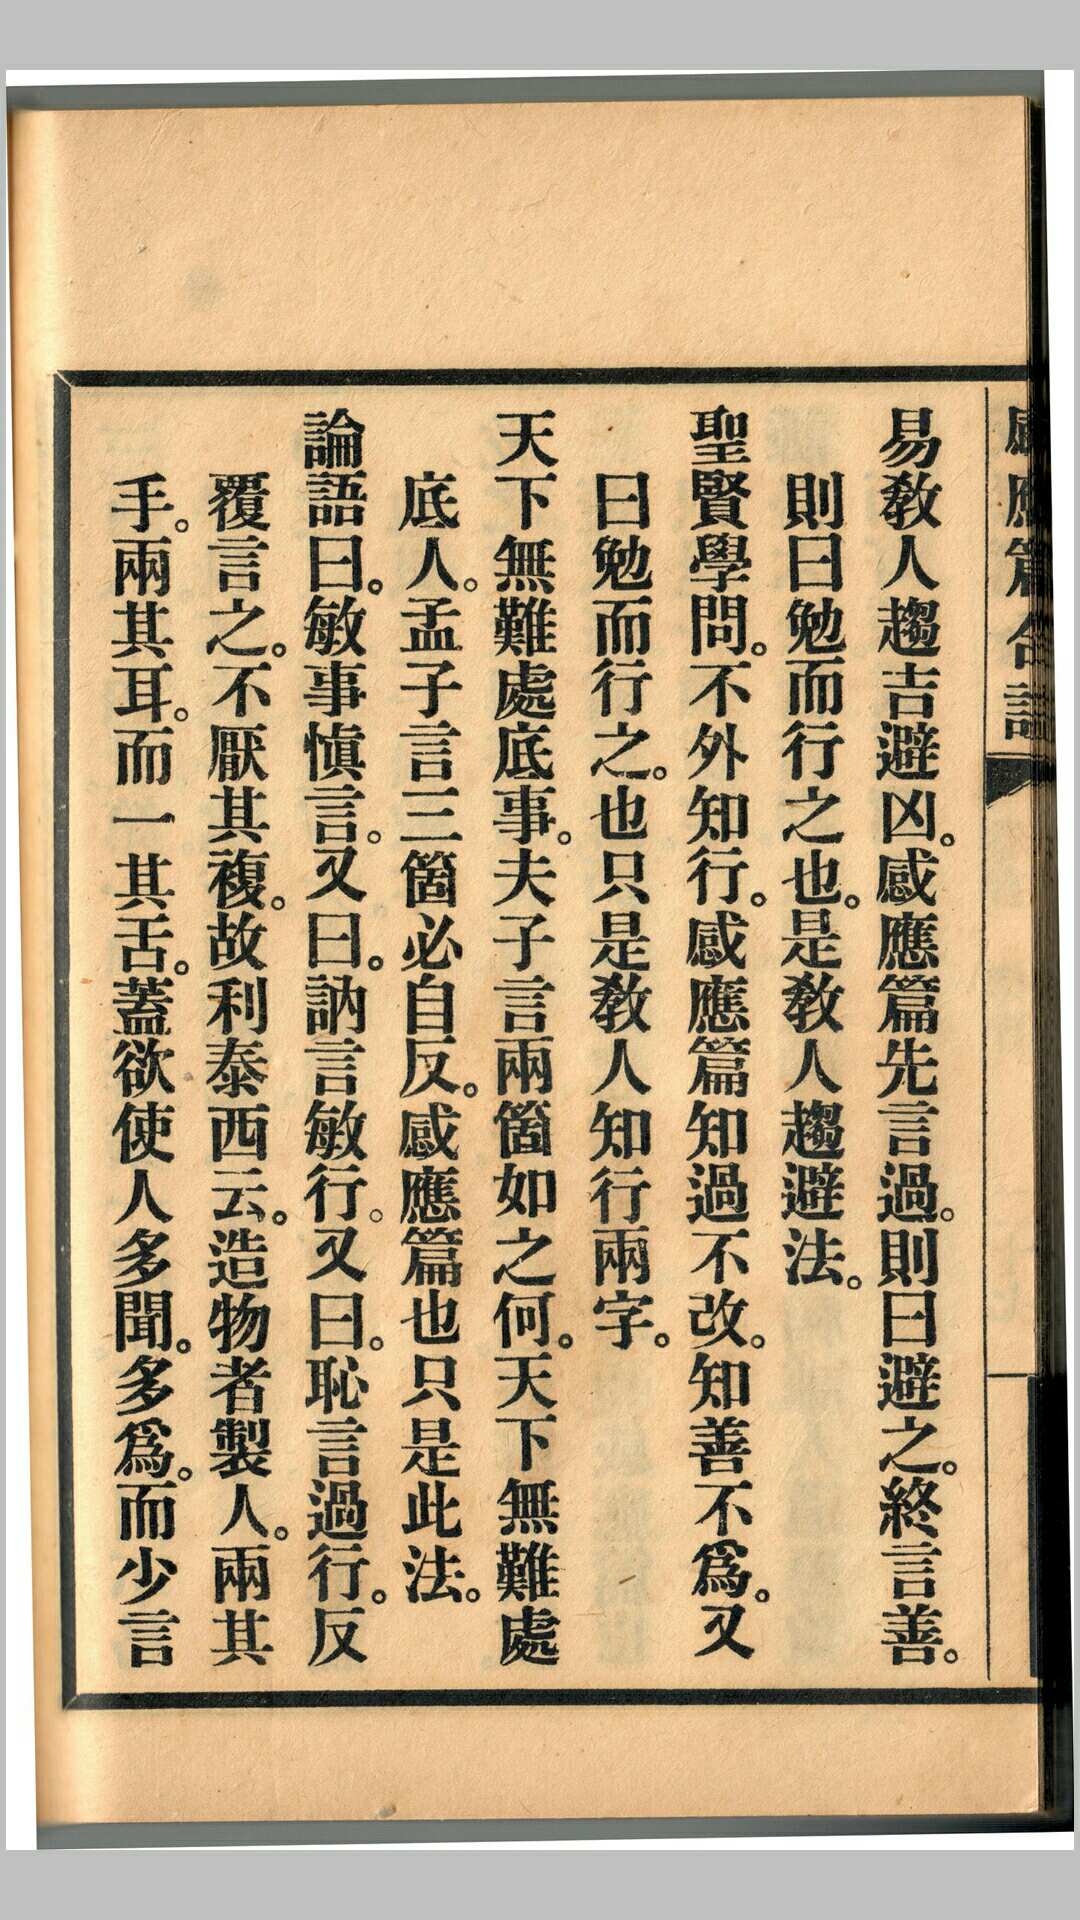 感應篇合
易教人趨吉避凶。感應篇先言過。則曰避之。終言善。
則曰勉而行之也。是教人趨避法。
聖賢學問。不外知行。感應篇知過不改。知善不爲。又
曰勉而行之。也只是教人知行兩字。
天下無難處底事。夫子言兩箇如之何。天下無難處
底人。孟子言三箇必自反。感應篇也只是此法。
論語曰。敏事愼言。又曰。訥言敏行。又曰。恥言過行。反
覆言之。不厭其複。故利泰西云。造物者製人。兩其
手。兩其耳。而一其舌。蓋欲使人多聞。多爲。而少言